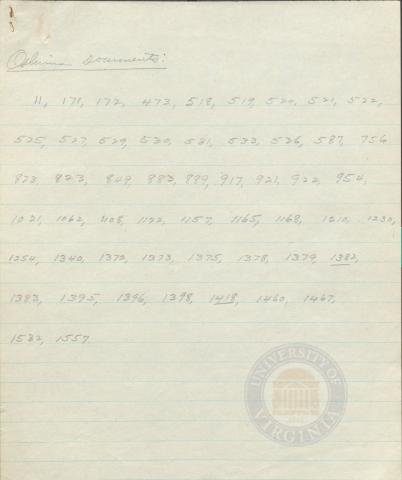 Documents:
11, 171, 172, 473, 518, 519, 520, 521, 522,
525, 527, 529, 530, 531, 533, 536, 587, 756
823, 849, 883, 889, 917, 921, 922, 954,
1021, 1062, 1108, 1122, 1157, 1165, 1168, 1210, 1230,
1254, 1340, 1372, 1373, 1375, 1378, 1379, 1382,
1383, 1395, 1396, 1398, 1418, 1460, 1467,
1532, 1557.
UNIVERSITY OF VIRGINIA